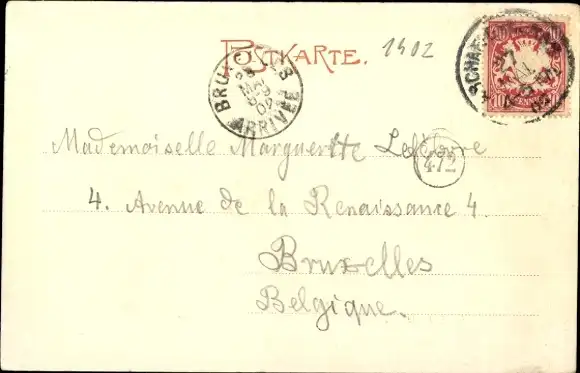 POSTKARTE.
1902
ARRIVÉE
10
10
Mademoiselle Marguerite Lefèbvre
472
4. Avenue de la Renaissance 4.
Bruxelles
Belgique.